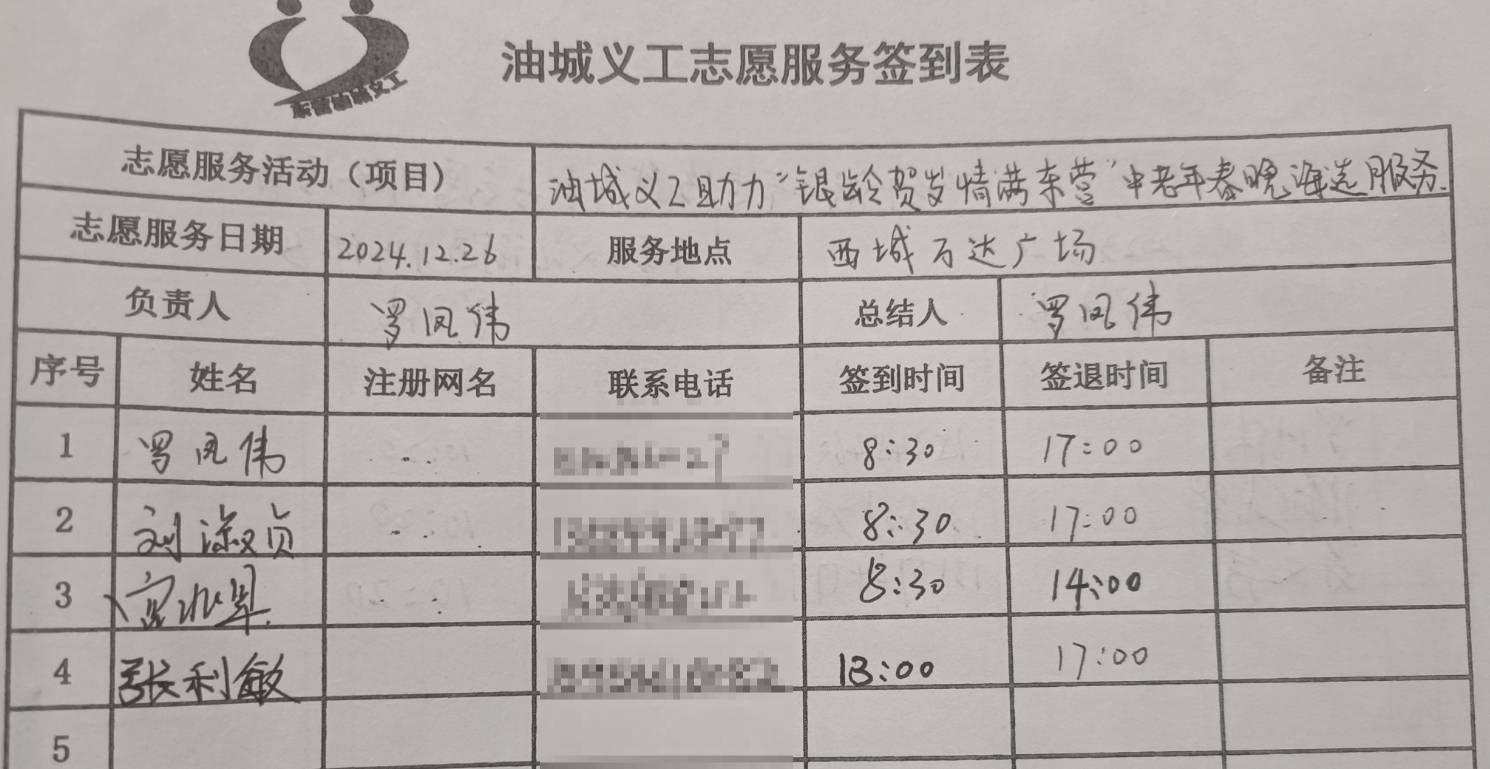 东营油城义工
油城义工志愿服务签到表
志愿服务活动（项目） 油城义工助力“银龄贺岁情满东营”中老年春晚海选服务.
志愿服务日期 2024.12.26 服务地点 西城万达广场
负责人 罗凤伟 总结人 罗凤伟
序号 姓名 注册网名 联系电话 签到时间 签退时间 备注
1 罗凤伟 8:30 17:00
2 刘淑贞 8:30 17:00
3 8:30 14:00
4 张利敏 13:00 17:00
5